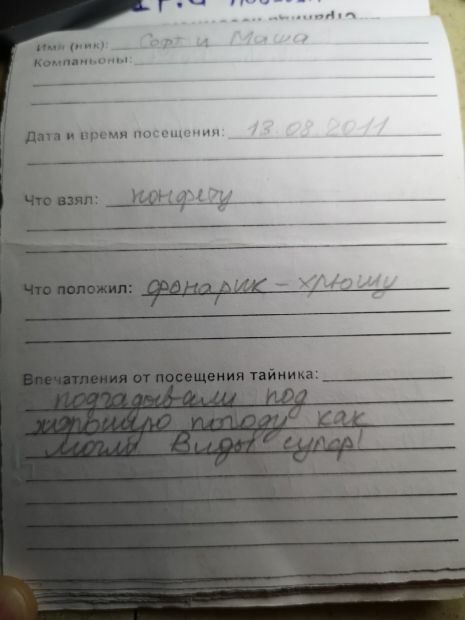 Имя (ник): Сорт и Маша
Компаньоны:
Дата и время посещения: 13.08.2011
Что взял: конфету
Что положил: фонарик - хрюшу
Впечатления от посещения тайника:
подгадывали под
хорошую погоду как
могли Виды супер!